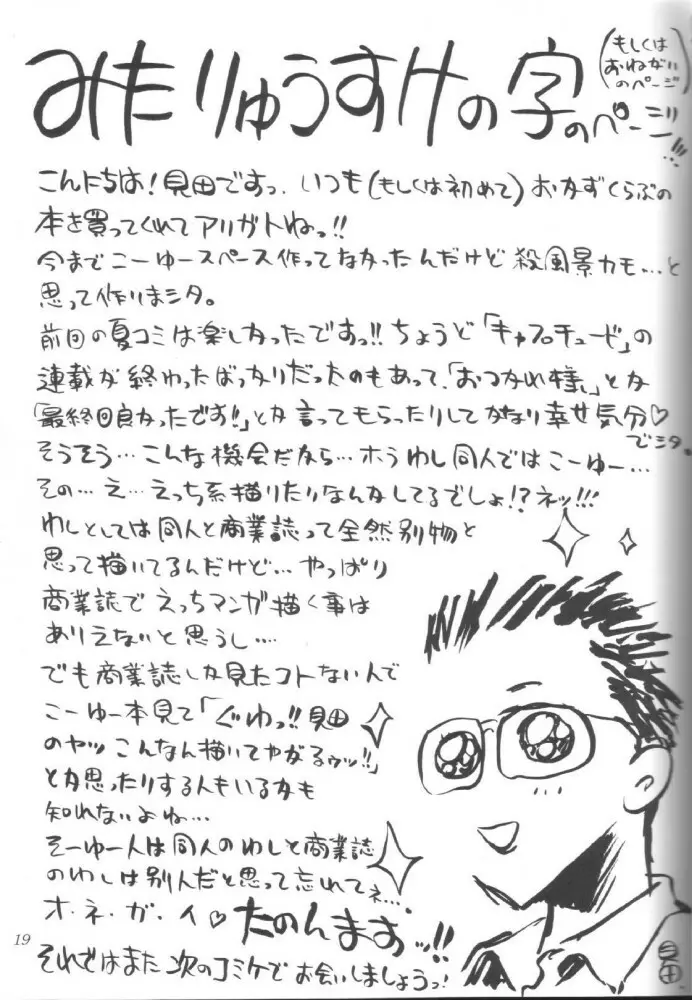 みたりゅうすけの字のページ!!!
(もしくはおねがいのページ)
こんにちは!見田ですっ.いつも(もしくは初めて)おかずくらぶの
本を買ってくれてアリガトねっ!!
今までこーゆースペース作ってなかったんだけど殺風景カモ…と
思って作りまシタ。
前回の夏コミは楽しかったですっ!!ちょうど「キャプチュード」の
連載が終わったばっかりだったのもあって、「おつかれ様」とか
「最終回良かったです!」とか言ってもらったりしてかなり幸せ気分♡
でシタ。
そうそう…こんな機会だから…ホラわし同人ではこーゆー…
その…え…えっち系描いたりなんかしてるでしょ!?ネッ!!!
わしとしては同人と商業誌って全然別物と
思って描いてるんだけど…やっぱり
商業誌でえっちマンガ描く事は
ありえないと思うし….
でも商業誌しか見たコトない人で
こーゆー本見て「ぐわっ!!見田
のヤツこんなん描いてやがるゥッ!!」
とか思ったりする人もいるかも
知れないよね…
そーゆー人は同人のわしと商業誌
のわしは別人だと思って忘れてネ…
オ・ネ・ガ・イ♡たのんますっ…!!
それではまた次のコミケでお会いしましょうっ!
見田
19